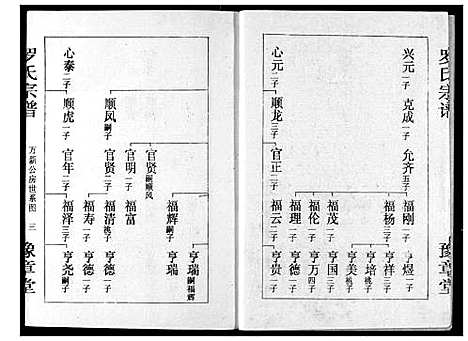 罗氏宗谱
豫章堂
兴元 二子
克成 一子
允齐 五子
福刚 一子
亨煜 一子
福杨 三子
亨祥 三子
亨培 桃子
亨美 桃子
福茂 一子
亨国 一子
福伦 一子
亨万 四子
福理 一子
亨德 一子
心元 二子
顺龙 三子
官正 二子
福云 二子
亨贵 二子
顺凤 嗣子
官贤 嗣顺凤
福辉 嗣子
亨瑞 嗣福辉
亨瑞
官明 一子
福富
官贤 二子
福清 桃子
亨德 一子
福寿 一子
亨德 一子
心泰 二子
顺虎 一子
官年 二子
福泽 三子
亨尧 嗣子
罗氏宗谱
万新公房世系图
三
豫章堂